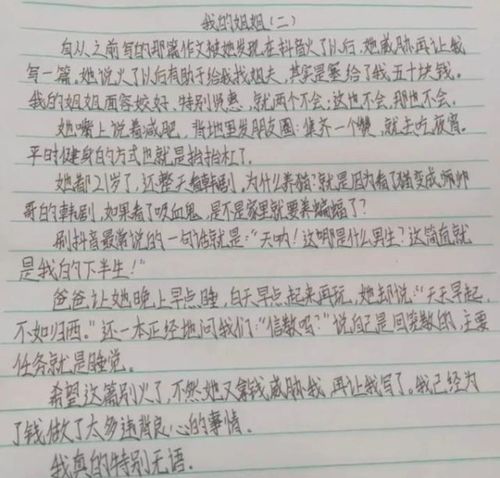 我的姐姐(二)
自从之前写的那篇作文被她发现在抖音火了以后,她威胁再让我
写一篇。她说火了以后有助于给我找姐夫,其实是塞给了我五十块钱。
我的姐姐面容姣好,特别贤惠,就两个不会:这也不会,那也不会。
她嘴上说着减肥,背地里发朋友圈:集齐一个赞,就去吃夜宵。
平时健身的方式也就是抬抬杠了。
她都21岁了,还整天看韩剧,为什么养猫?就是因为看了猫变成帅帅
哥的韩剧,如果看了吸血鬼,是不是家里就要养蝙蝠了?
刷抖音最常说的一句话就是:“天呐!这哪是什么男生?这简直就
是我的下半生!”
爸爸让她晚上早点睡,白天早点起来再玩,她却说:“天天早起,
不如归西。”还一本正经地问我们:“信教吗?”说自己是回笼教的,主要
任务就是睡觉。
希望这篇别火了,不然她又拿钱威胁我,再让我写了。我已经为
了钱做了太多违背良心的事情。
我真的特别无语。